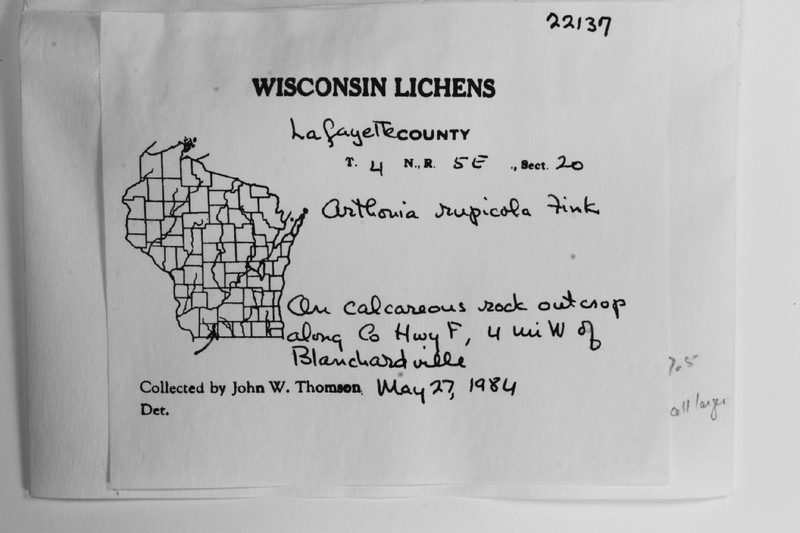 22137
WISCONSIN LICHENS
Lafayette COUNTY
T. 4 N., R. 5E ., Sect. 20
Arthonia rupicola Fink
On calcareous rock outcrop
along Co Hwy F, 4 mi W of
Blanchardville
Collected by John W. Thomson, May 27, 1984
Det.
7.5
cell larger